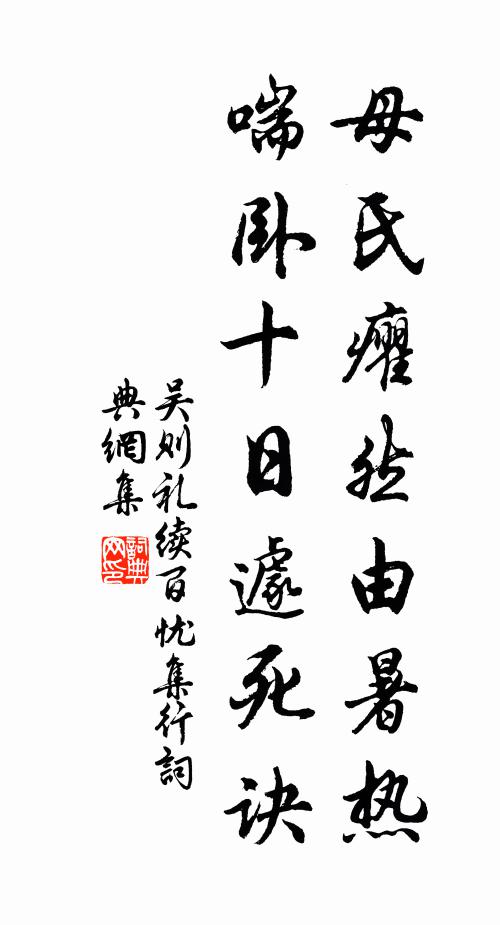 母氏癯然由暑热
喘卧十日遽死诀
吴则礼续百忧集行词
典網集
詞典網印